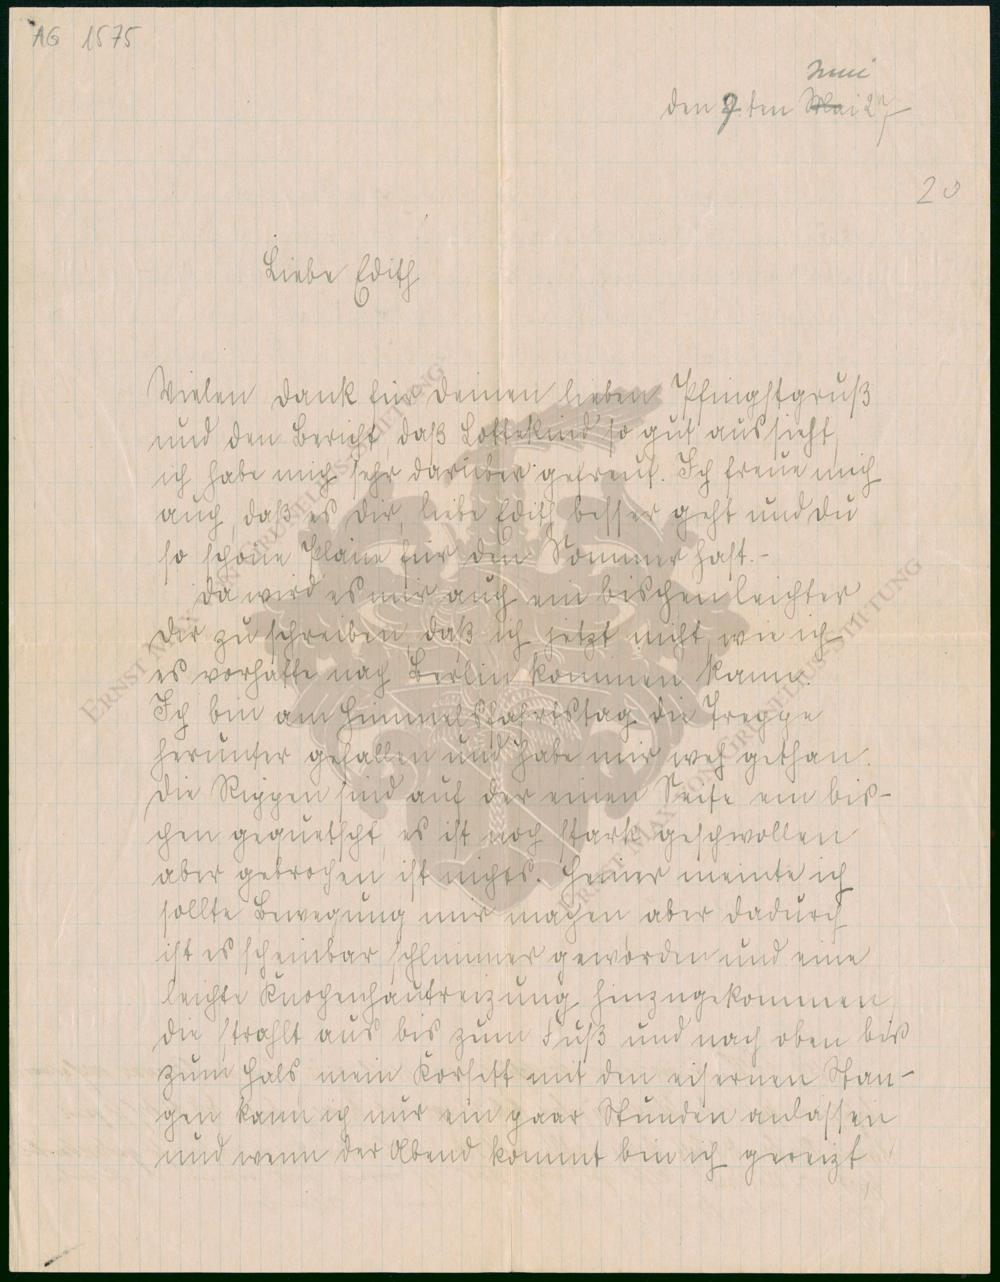 AG 1575
Juni
den 9. ten Mai 27
20
Liebe Edith
Vielen Dank für Deinen lieben Pfingstgruß
und den Bericht, daß Lottekind so gut aussieht,
ich habe mich sehr darüber gefreut. Ich freue mich
auch, daß es Dir, liebe Edith besser geht und Du
so schöne Pläne für den Sommer hast.-
Da wird es mir auch ein bischen leichter
Dir zu schreiben, daß ich jetzt nicht, wie ich
es vorhatte nach Berlin kommen kann.
Ich bin am Himmelsfahrtstag die Treppe
herunter gefallen und habe mir weh gethan.
Die Rippen sind auf der einen Seite ein bis-
chen gequetscht, es ist noch stark geschwollen
aber gebrochen ist nichts. Heiner meinte ich
sollte Bewegung mir machen aber dadurch
ist es scheinbar schlimmer geworden und eine
leichte Knochenhautreizung hinzugekommen
die strahlt aus bis zum Fuß und nach oben bis
zum Hals mein Korsett mit den eisernen Stan-
gen kann ich nur ein paar Stunden anlassen
und wenn der Abend kommt bin ich gereizt,
ERNST MAX VON GRUNELIUS-STIFTUNG
ERNST MAX VON GRUNELIUS-STIFTUNG